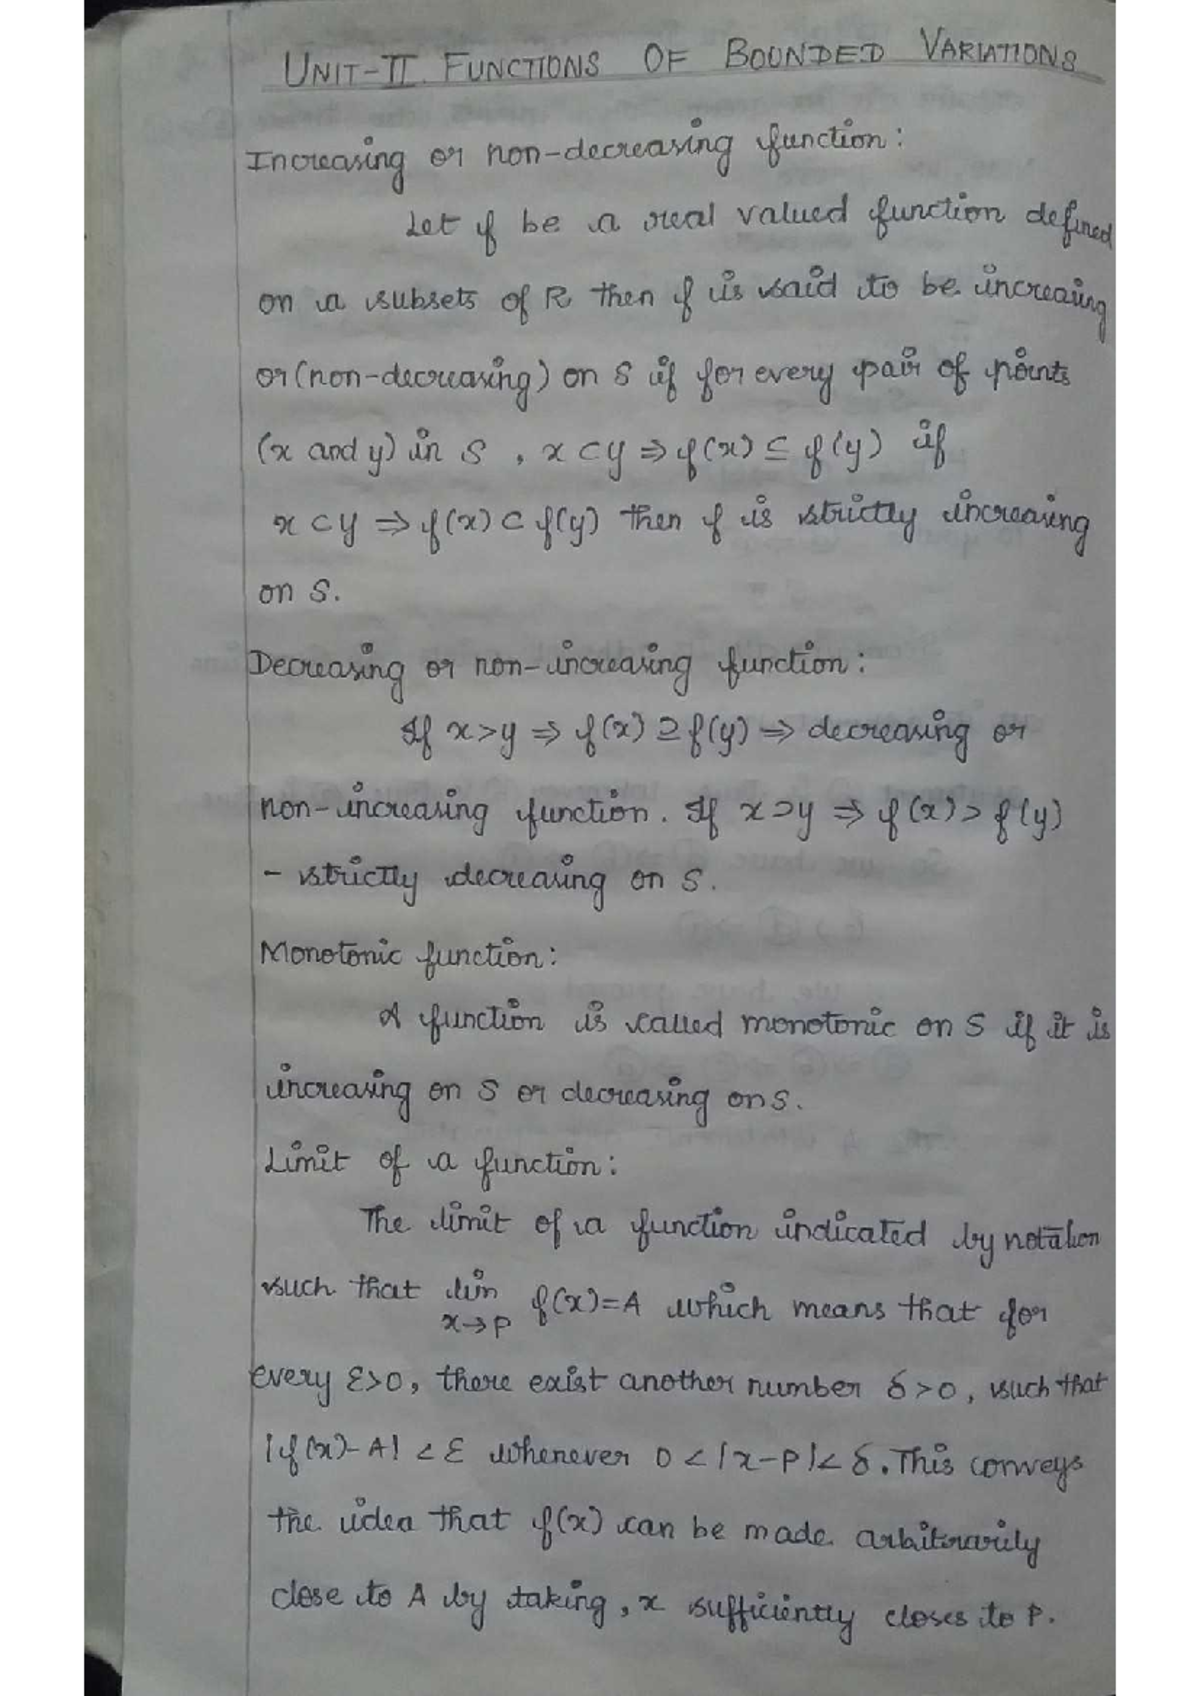 UNIT-II. FUNCTIONS OF BOUNDED VARIATIONS
Increasing or non-decreasing function:
Let f be a real valued function defined
on a subsets of R then f is said to be increasing
or (non-decreasing) on S if for every pair of points
(x and y) in S, x ⊂ y ⇒ f(x) ⊆ f(y) if
x ⊂ y ⇒ f(x) ⊂ f(y) then f is strictly increasing
on S.
Decreasing or non-increasing function:
If x > y ⇒ f(x) ⊇ f(y) ⇒ decreasing or
non-increasing function. If x ⊃ y ⇒ f(x) > f(y)
- strictly decreasing on S.
Monotonic function:
A function is called monotonic on S if it is
increasing on S or decreasing on S.
Limit of a function:
The limit of a function indicated by notation
such that lim f(x)=A which means that for
x→p
every ε>0, there exist another number δ>0, such that
|f(x)-A| < ε whenever 0 < |x-p| < δ. This conveys
the idea that f(x) can be made arbitrarily
close to A by taking, x sufficiently closes to P.